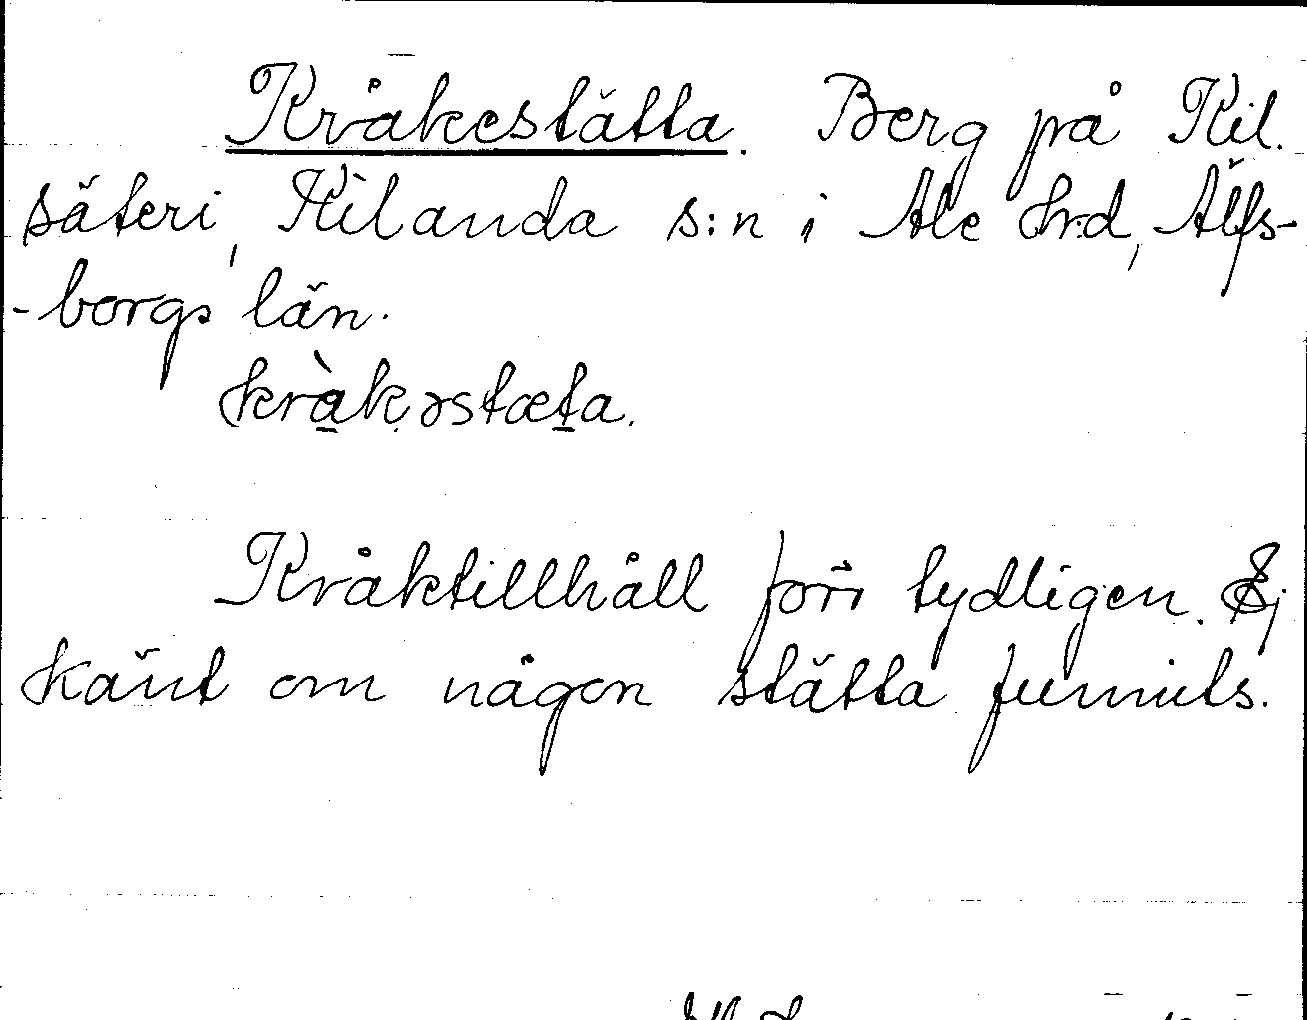 Kråkestätta. Berg på Kil.
säteri, Kilanda s:n i Ale hrd, Älfs-
-borgs län.
kràkəstæta.
Kråktillhåll förr tydligen. Ej
känt om någon stätta funnits.